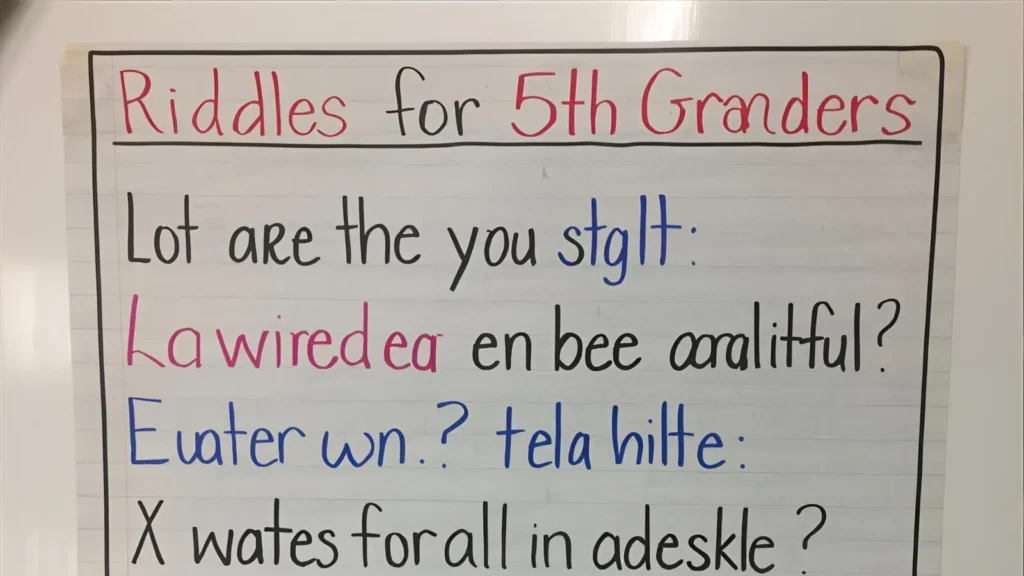 Riddles for 5th Granders
Lot are the you stglt:
Lawiredea en bee ooralitful?
Euater wn.? tela hilte:
X wates for all in adeskle?